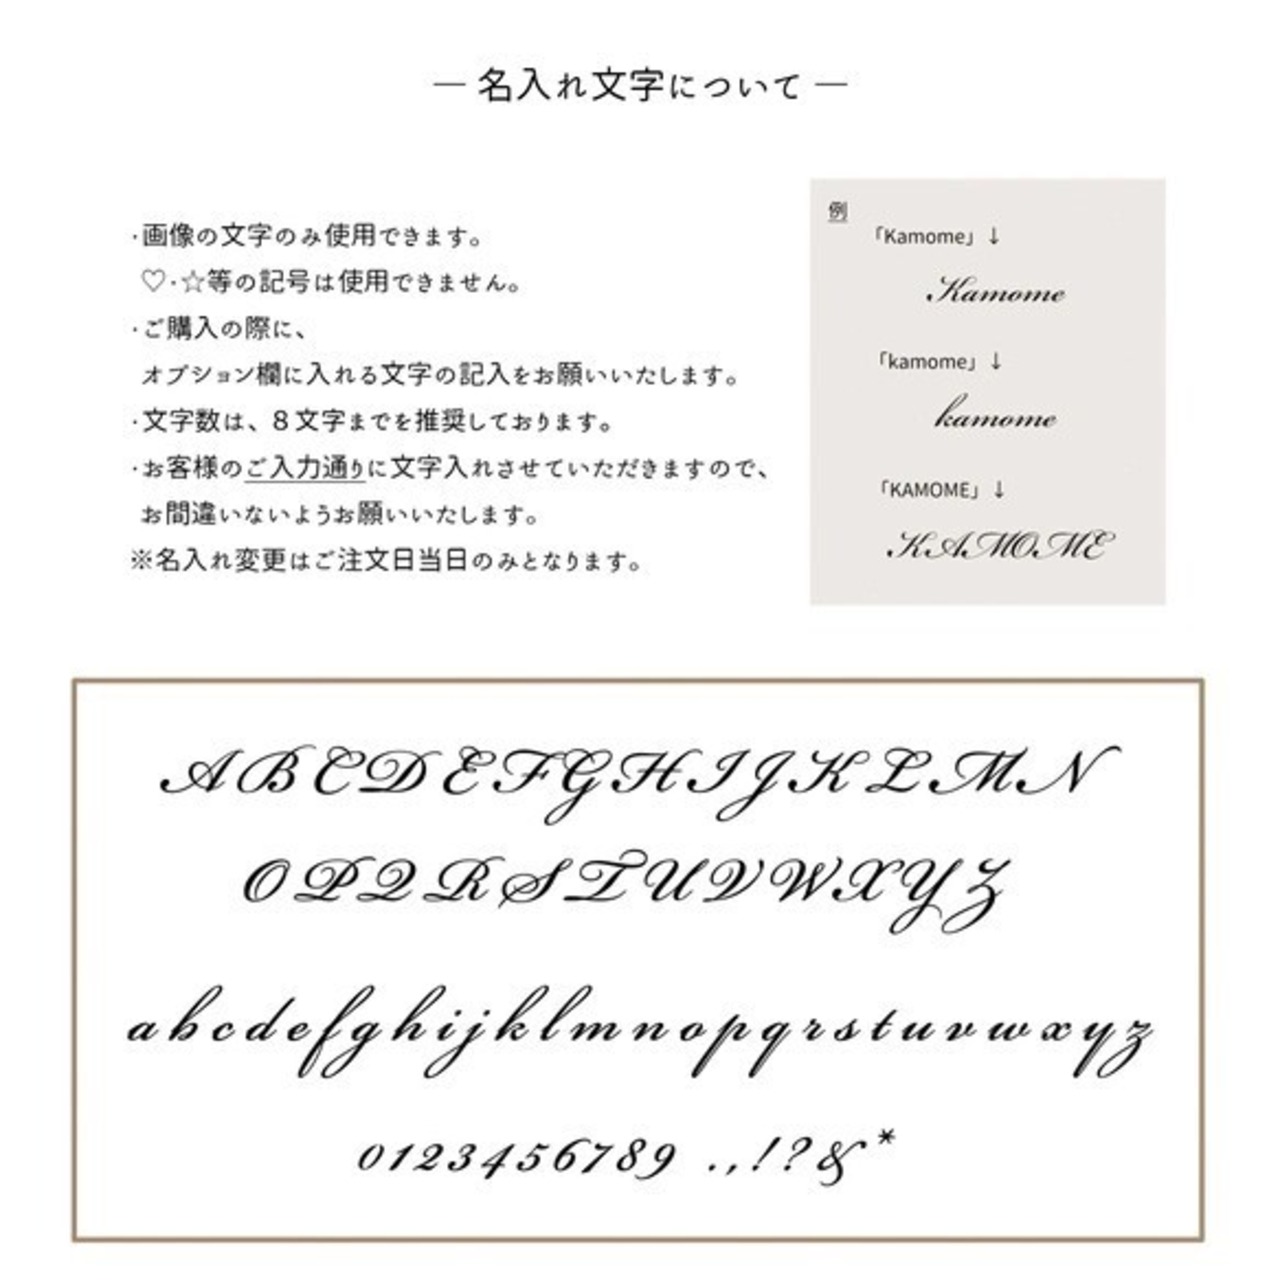 ― 名入れ文字について ―
・画像の文字のみ使用できます。
♡・☆等の記号は使用できません。
・ご購入の際に、
オプション欄に入れる文字の記入をお願いいたします。
・文字数は、８文字までを推奨しております。
・お客様のご入力通りに文字入れさせていただきますので、
お間違いないようお願いいたします。
※名入れ変更はご注文日当日のみとなります。
例
「Kamome」↓
Kamome
「kamome」↓
kamome
「KAMOME」↓
KAMOME
ABCDEFGHIJKLMN
OPQRSTUVWXYZ
abcdefghijklmnopqrstuvwxyz
0123456789 .,!?&*